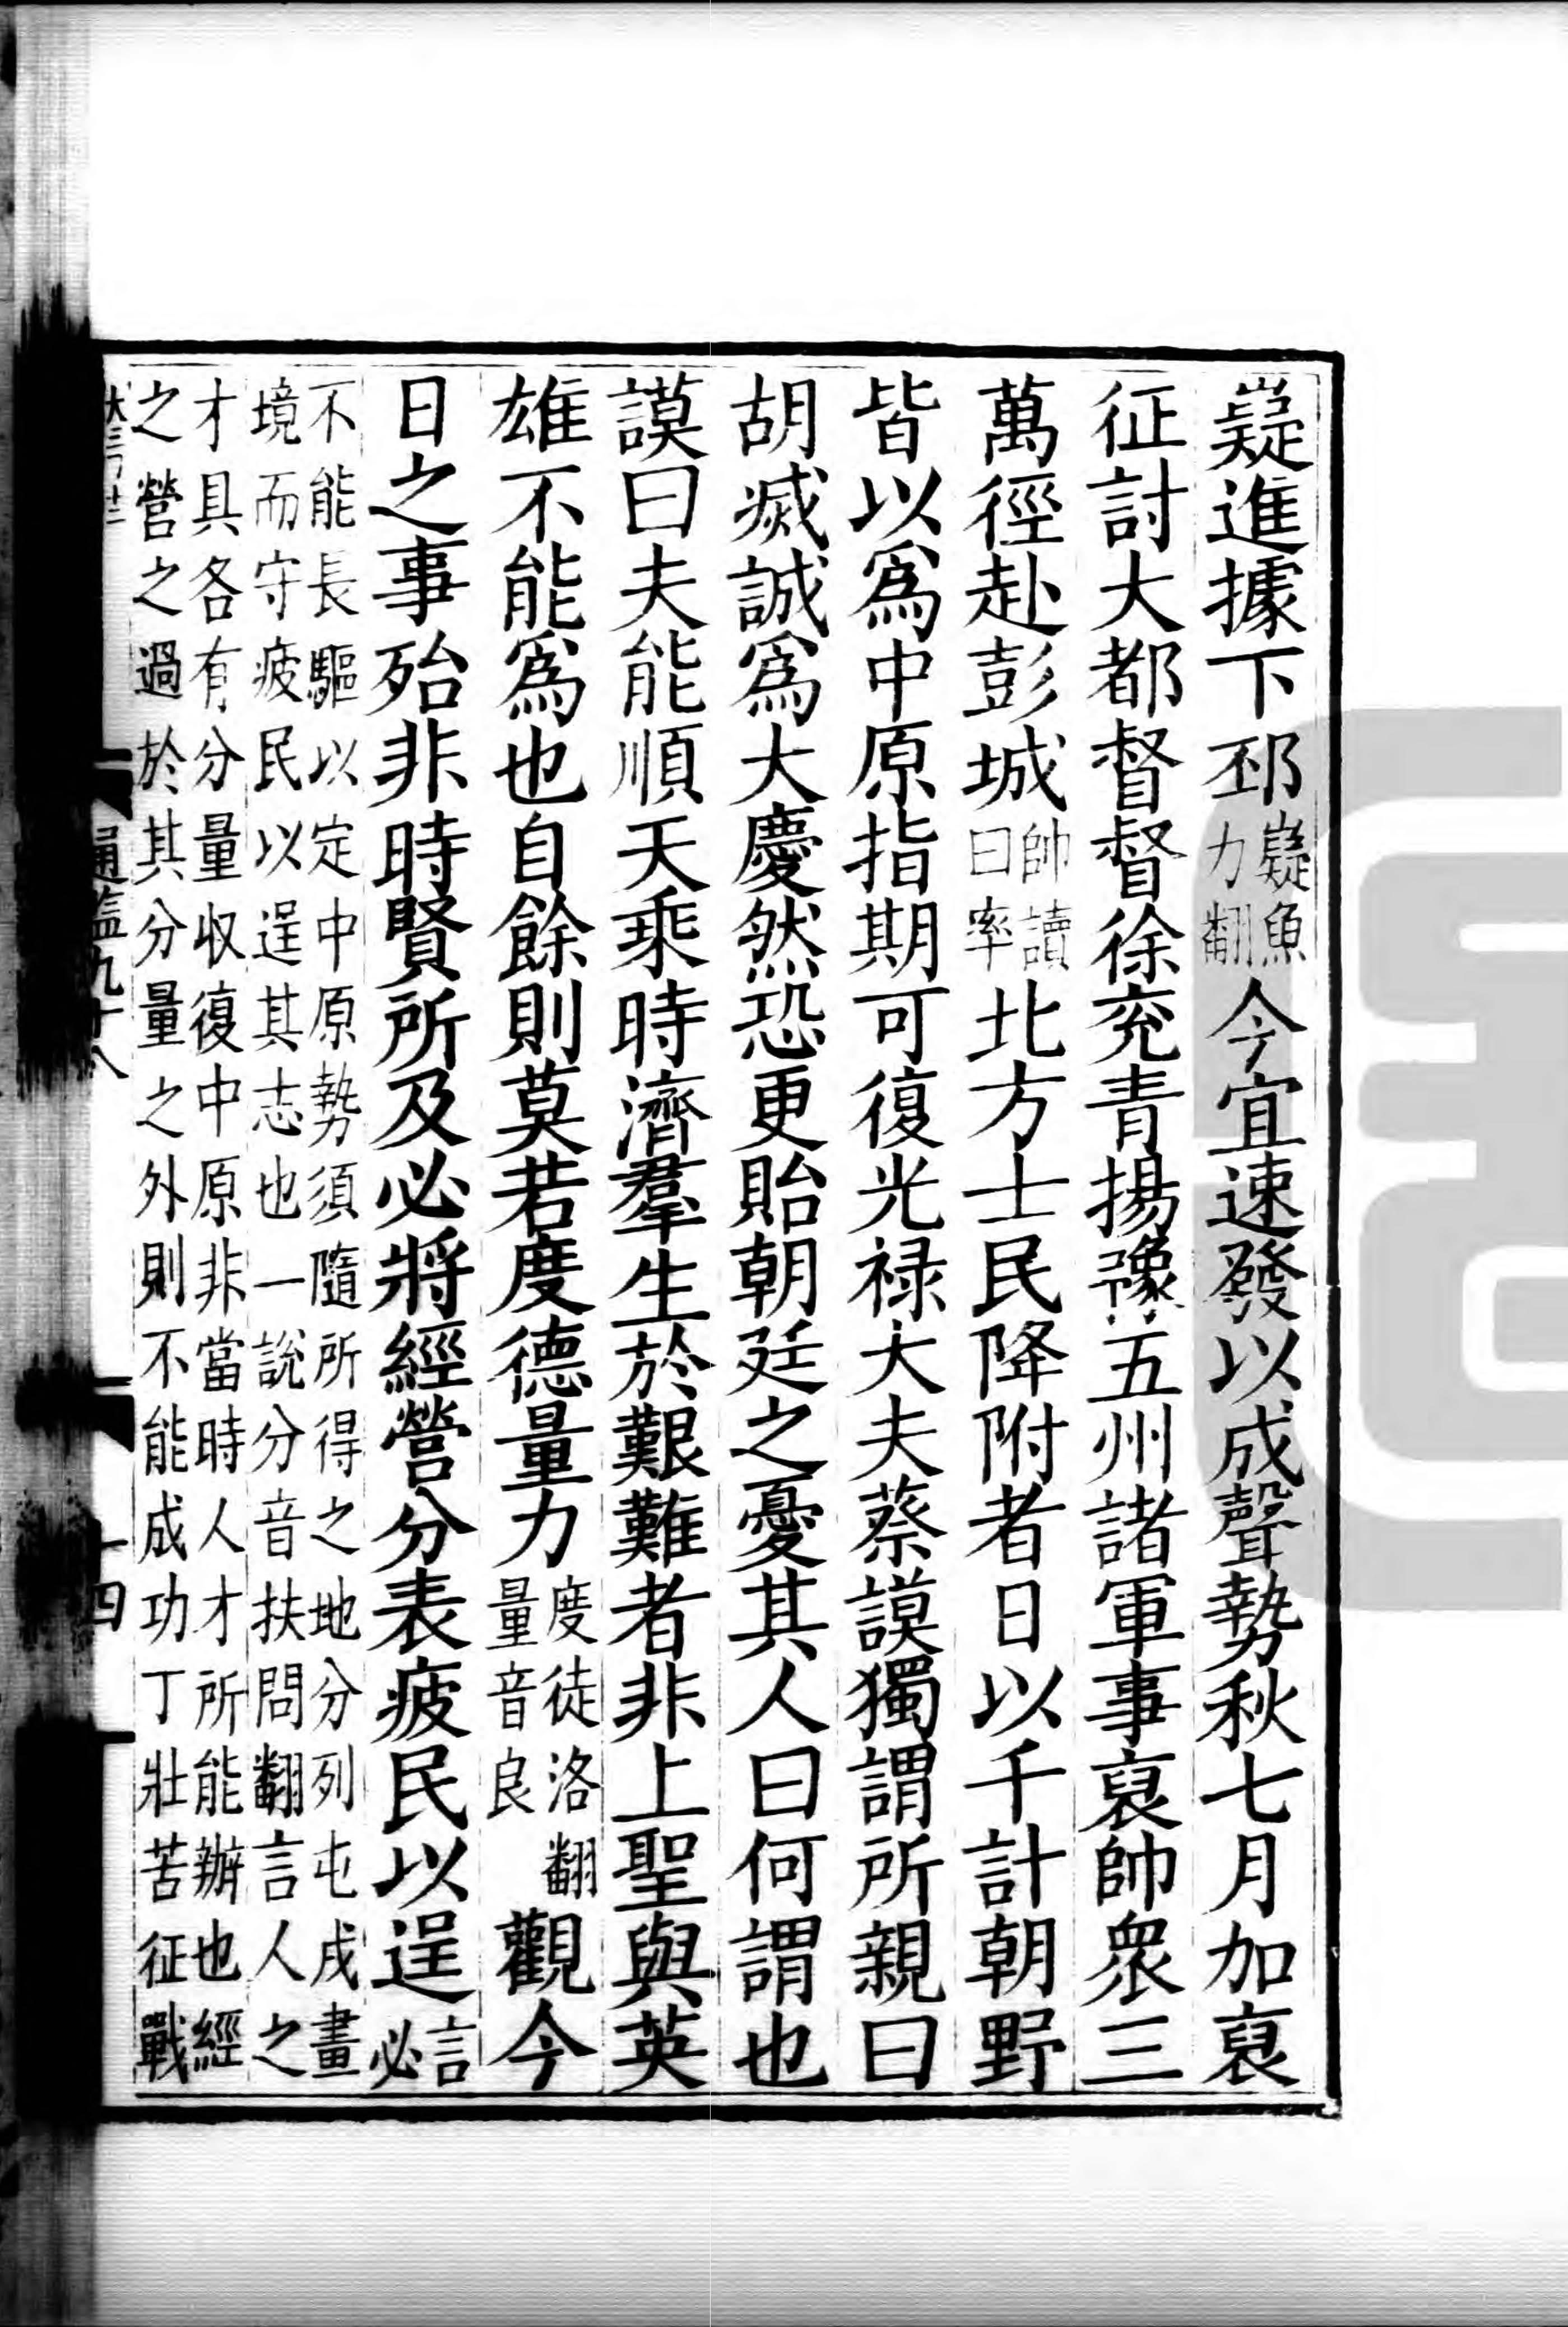 嶷進據下邳嶷魚力翻今宜速發以成聲勢秋七月加裒
征討大都督督徐兖青揚豫五州諸軍事裒帥衆三
萬徑赴彭城帥讀曰率北方士民降附者日以千計朝野
皆以爲中原指期可復光禄大夫蔡謨獨謂所親曰
胡滅誠爲大慶然恐更貽朝廷之憂其人曰何謂也
謨曰夫能順天乘時濟羣生於艱難者非上聖與英
雄不能爲也自餘則莫若度德量力度徒洛翻量音良觀今
日之事殆非時賢所及必將經營分表疲民以逞言必
不能長驅以定中原勢須隨所得之地分列屯戍畫
境而守疲民以逞其志也一說分音扶問翻言人之
才具各有分量收復中原非當時人才所能辦也經
之營之過於其分量之外則不能成功丁壯苦征戰
通鑑九十八
十四